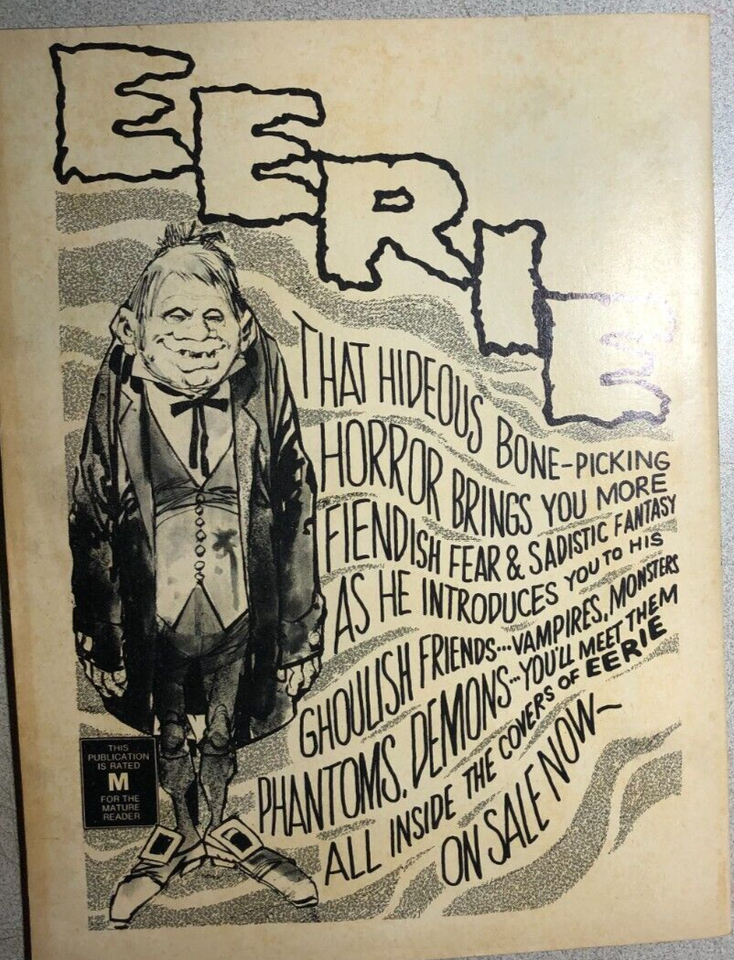 EERIE
THAT HIDEOUS BONE-PICKING
HORROR BRINGS YOU MORE
FIENDISH FEAR & SADISTIC FANTASY
AS HE INTRODUCES YOU TO HIS
GHOULISH FRIENDS...VAMPIRES, MONSTERS
PHANTOMS, DEMONS...YOU'LL MEET THEM
ALL INSIDE THE COVERS OF EERIE
ON SALE NOW~
THIS
PUBLICATION
IS RATED
M
FOR THE
MATURE
READER